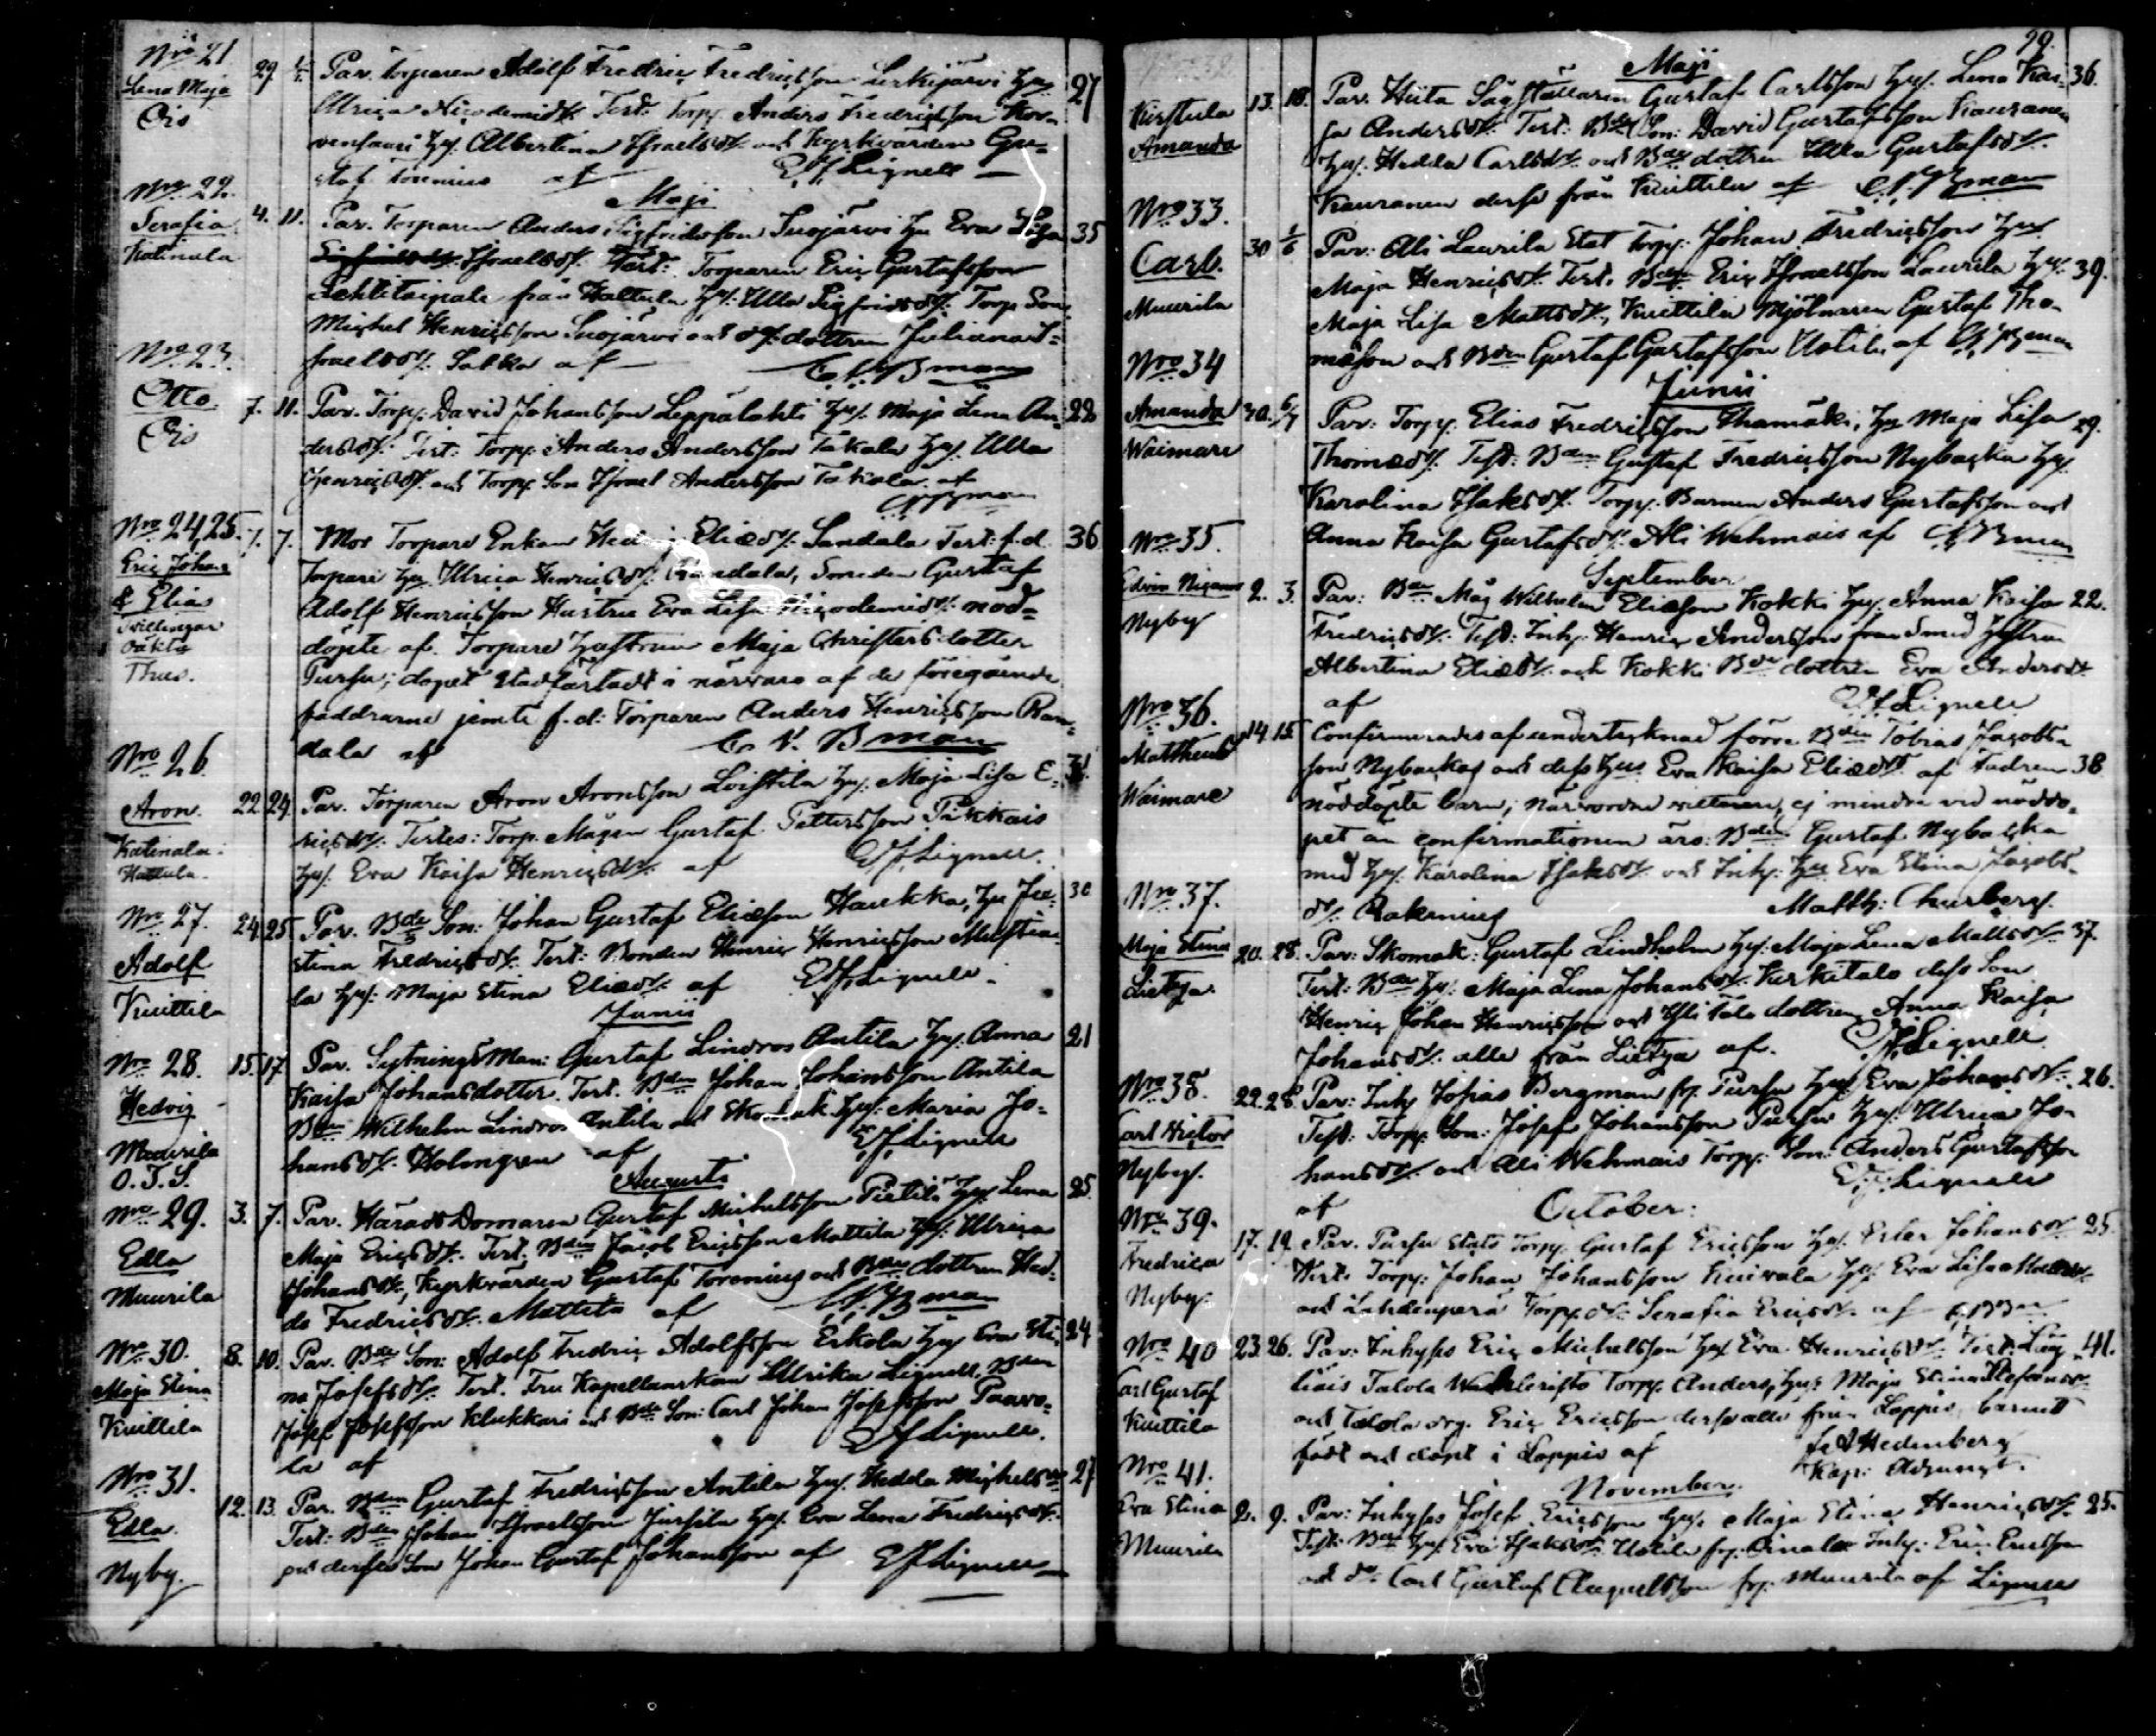 Nro 21
Lena Maja
Ois
29. Par. Torparen Adolf Fredric Fredricsson Lerkijärvi Hu 27
Ulrica Nicodemidr. Test: Torp. Anders Fredricsson
Hu. Albertina Israelsdr. och Kyrkvärden Gu-
staf Torenius af E J Lignell
Maji
Nro 22.
Serafia
Katinala
4. 11. Par. Torparen Anders Sigfridsson Suojärvi Hu Eva Lisa 35
Israelsdr. Test: Torparen Eric Gustafsson
från Hattula Hu. Ulla Sigfridsdr. Torp Son
Michel Henricsson Suojärvi och dr. dottren Juliana I-
sraelsdr. Sakka af C. N. Bman
Nro 23.
Otto
Ois
7. 11. Par. Torp. David Johansson Leppälahti Hu. Maja Lena An- 22
dersdr. Test: Torp. Anders Andersson Takala Hu. Ulla
Henricsdr. och Torp. Son Israel Andersson Takala af
Nro 24, 25.
Eric Johan
& Elia
Twillingar
oäkta
7. 7. Mor Torpare Enkan Hedvig Eliædr. Sandala Test: f.d. 36
Torpare Hu. Ulrica Henricsdr. Sandala, Smeden Gustaf
Adolf Henricsson Hustru Eva Lisa Nicodemidr. nöd-
döpte af Torpare Hustrun Maja Christersdotter
Pursu; dopet stadfästadt i närvaro af de föregående
faddrarne jemte f.d. Torparen Anders Henricsson
dala af C. N. Bman
Nro 26.
Aron.
Katinala
Hattula.
22. 24. Par. Torparen Aron Aronsson Loistila Hu. Maja Lisa E- 31
ricsdr. Testes: Torp. Mågen Gustaf Pettersson Pükkais
Hu. Eva Kaisa Henricsdr. af E J Lignell.
Nro 27.
Adolf
Kuittila
24. 25. Par. Bde Son: Johan Gustaf Eliæson Haukka, Hu Ju- 30
stina Fredricsdr. Test: Bonden Henric Henricsson
la Hu: Maja Stina Eliædr. af E J Lignell.
Junii
Nro 28.
Hedvig
Muurila
O. T. S.
15. 17. Par. SytningsMan: Gustaf Lindros Antila Hu. Anna 21
Kaisa Johansdotter. Test. Bden Johan Johansson Antila
Bden Wilhelm Lindros Antila och Skomak. Hu: Maria Jo-
hansdr. Holmgren af E J Lignell
Augusti
Nro 29.
Edla
Muurila
3. 7. Par. Härads Domaren Gustaf Michelsson Pietilä Hu. Lena 25.
Maja Ericsdr. Test: Bden Jacob Ericsson Mattila Hu. Ulrica
Johansdr., Kyrkvärden Gustaf Torenius och Bde dottren Hed-
da Fredricsdr. Mattila af C. N. Bman
Nro 30.
Maja Stina
Kuittila
8. 10. Par. Bde Son: Adolf Fredric Adolfsson Erkola Hu. Eva Sti- 24
na Josefsdr. Test. Fru Kapellanskan Ulrika Lignell, Bden
Josef Josefsson Klukkari och Bde Son: Carl Johan Josefsson Paavo-
la af E J Lignell.
Nro 31.
Edla
Nyby.
12. 13. Par. Bden Gustaf Fredricsson Antila Hu. Hedda Michelsdr 27
Test: Bden Johan Israelsson Jussila Hu. Eva Lena Fredricsdr.
och derses Son Johan Gustaf Johansson af E J Lignell
90.
Maji
Nro 32
Amanda
13. 18. Par. Hiita Sågställaren Gustaf Carlsson Hu. Lena Kai- 36.
sa Andersdr. Test: Bde Son: David Gustafsson Kauranen
Hu. Hedda Carlsdr. och Bde dottren Ulla Gustafsdr.
Kauranen derse från Kuittila af C. N. Bman
Nro 33.
Carl.
Muurila
30 1/6 Par: Ali Laurila Stat Torp. Johan Fredricsson Hu
Maja Henricsdr. Test. Bde Eric Israelsson Laurila Hu. 39.
Maja Lisa Mattsdr., Kuittila Mjölnaren Gustaf Tho-
mæson och Bden Gustaf Gustafsson Uotila af C N Bman
Junii
Nro 34
Amanda
Waimare
30. 6/7 Par: Torp. Elias Fredricsson Ihamäki, Hu Maja Lisa 29.
Thomædr. Test: Bden Gustaf Fredricsson Nybacka Hu.
Karolina Isaksdr. Torp. Barnen Anders Gustafsson och
Anna Kaisa Gustafsdr. Ali Wehmais af C N Bman
September
Nro 35.
Edvin
Nyby
2. 3. Par: Bde Måg Wilhelm Eliæson Kokki Hu. Anna Kaisa 22.
Fredricsdr. Test: Inh. Henric Andersson Smed Hustrun
Albertina Eliædr. och Kokki Bde dottren Eva Andersdr
af E J Lignell
Nro 36.
Mattheus
Waimare
14 15. Confirmerades af undertecknad förre Bden Tobias Jacobs-
son Nybackas och dess Hus Eva Kaisa Eliædr. af Fadren 38
nöddöpte barn; närvarne vittnen, ej mindre vid nöddo-
pet än confirmationen äro: Bden Gustaf Nybacka
med Hu. Karolina Isaksdr. och Inh: Hu Eva Stina Jacobs-
dr. Matth: Churberg.
Nro 37.
Maja Stina
Lietza.
20. 28. Par: Skomak: Gustaf Lindholm Hu. Maja Lena Mattsdr. 37.
Test: Bde Hu. Maja Lena Johansdr. Kerkitalo dess Son
Henric Johan Henricsson och Yli Talo dottren Anna Kaisa
Johansdr. alle från Lietza af. E J Lignell
Nro 38.
Carl Victor
Nyby.
22. 28. Par: Inh. Josias Bergman fr. Pursu Hu. Eva Johansdr. 26.
Test: Torp. Son: Josef Johansson Pursu Hu. Ulrica Jo-
hansdr. och Ali Wehmais Torp. Son: Anders Gustafsson
af E J Lignell
October:
Nro 39.
Fredrica
Nyby.
17. 19. Par. Pursu Stats Torp. Gustaf Ericsson Hu. Ester Johansdr. 25.
Test. Torp: Johan Johansson Kuivala Hu. Eva Lisa
och Lahdenperä Torp. dr. Serafia Ericsdr. af
Nro 40
Carl Gustaf
Kuittila
23. 26. Par: Inhyses Eric Michelsson Hu. Eva Henricsdr. Test: 41.
Talola Torp. Anders, Hu. Maja Stina
och Talola drg. Eric Ericsson derse alle från Loppis, barnet
född och döpt i Loppis af Hedenberg
Kap: Adjunct.
November.
Nro 41.
Eva Stina
Muurila
2. 9. Par: Inhyses Josef Ericsson Hu. Maja Stina Henricsdr. 25.
Test. Bde Hu. Eva Isaksdr. Uotila fr. Inh: Eric Ericsson
och dr. Carl Gustaf fr. Muurila af Lignell